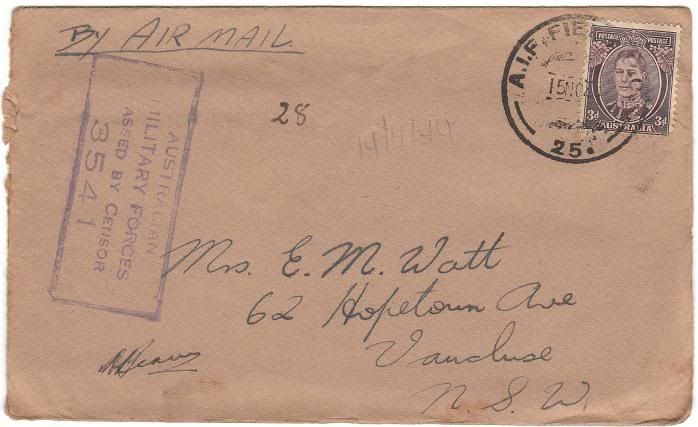 By Air Mail
A.I.F. FIE
15 NO
25.
POSTAGE POSTAGE
3d 3d
AUSTRALIA
28
14/11/44
AUSTRALIAN
MILITARY FORCES
PASSED BY CENSOR
3541
Mrs. E. M. Watt
62 Hopetoun Ave
Vaucluse
N. S. W.